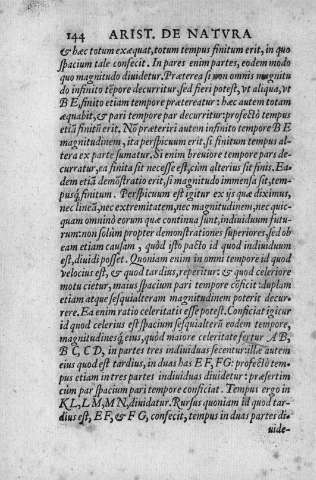 144 ARIST. DE NATVRA
& hæc totum exæquat, totum tempus finitum erit, in quo
spacium tale confecit. In pares enim partes, eodem modo
quo magnitudo diuidetur. Præterea si non omnis magnitu
do infinito tēpore decurritur, sed fieri potest, vt aliqua, vt
B E, finito etiam tempore prætereatur: hæc autem totam
æquabit, & pari tempore par decurritur: profectò tempus
etiā finitū erit. Nō præteriri autem infinito tempore B E
magnitudinem, ita perspicuum erit, si finitum tempus al
tera ex parte sumatur. Si enim breuiore tempore pars de
curratur, ea finita sit necesse est, cùm alterius sit finis. Ea-
dem etiā demōstratio erit, si magnitudo immensa sit, tem-
pusq́; finitum. Perspicuum est igitur ex ijs quæ diximus,
nec lineā, nec extremitatem, nec magnitudinem, nec quic-
quam omninò eorum quæ continua sunt, indiuiduum futu-
rum: non solùm propter demonstrationes superiores, sed ob
eam etiam causam, quòd isto pacto id quod indiuiduum
est, diuidi posset. Quoniam enim in omni tempore id quod
velocius est, & quod tardius, reperitur: & quod celeriore
motu cietur, maius spacium pari tempore cōficit: duplam
etiam atque sesquialteram magnitudinem poterit decur-
rere. Ea enim ratio celeritatis esse potest. Conficiat igitur
id quod celerius est spacium sesquialterū eodem tempore,
magnitudinesq́; eius, quòd maiore celeritate fertur A B,
B C, C D, in partes tres indiuiduas secentur: illæ autem
eius quod est tardius, in duas has E F, F G: profectò tem-
pus etiam in tres partes indiuiduas diuidetur: præsertim
cùm par spacium pari tempore conficiat. Tempus ergo in
K L, L M, M N, diuidatur. Rursus quoniam id quod tar-
dius est, E F, & F G, confecit, tempus in duas partes di-
uide-